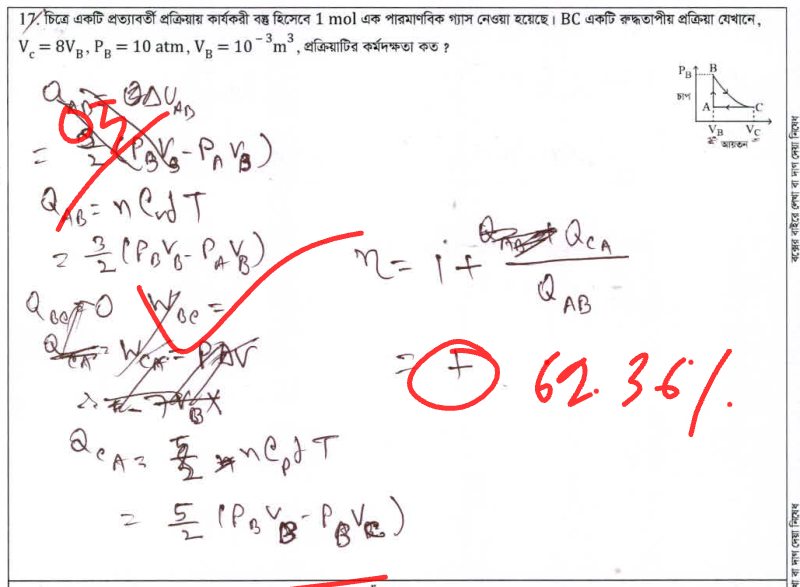 17. চিত্রে একটি প্রত্যাবর্তী প্রক্রিয়ায় কার্যকরী বস্তু হিসেবে 1 mol এক পারমাণবিক গ্যাস নেওয়া হয়েছে। BC একটি রুদ্ধতাপীয় প্রক্রিয়া যেখানে,
V_c = 8V_B, P_B = 10 atm, V_B = 10^-3 m^3, প্রক্রিয়াটির কর্মদক্ষতা কত ?
P_B B
চাপ
A C
V_B V_C
আয়তন
03
Q_AB = ΔU_AB
= 3/2 (P_B V_B - P_A V_B)
Q_AB = n C_v dT
= 3/2 (P_B V_B - P_A V_B)
Q_BC = 0 W_BC =
Q_CA = W_CA = PΔV
Q_CA = 5/2 n C_p dT
= 5/2 (P_B V_B - P_B V_C)
η = 1 + Q_CA / Q_AB
= + 62.36%.
বক্সের বাইরে লেখা বা দাগ দেয়া নিষেধ
বা দাগ দেয়া নিষেধ